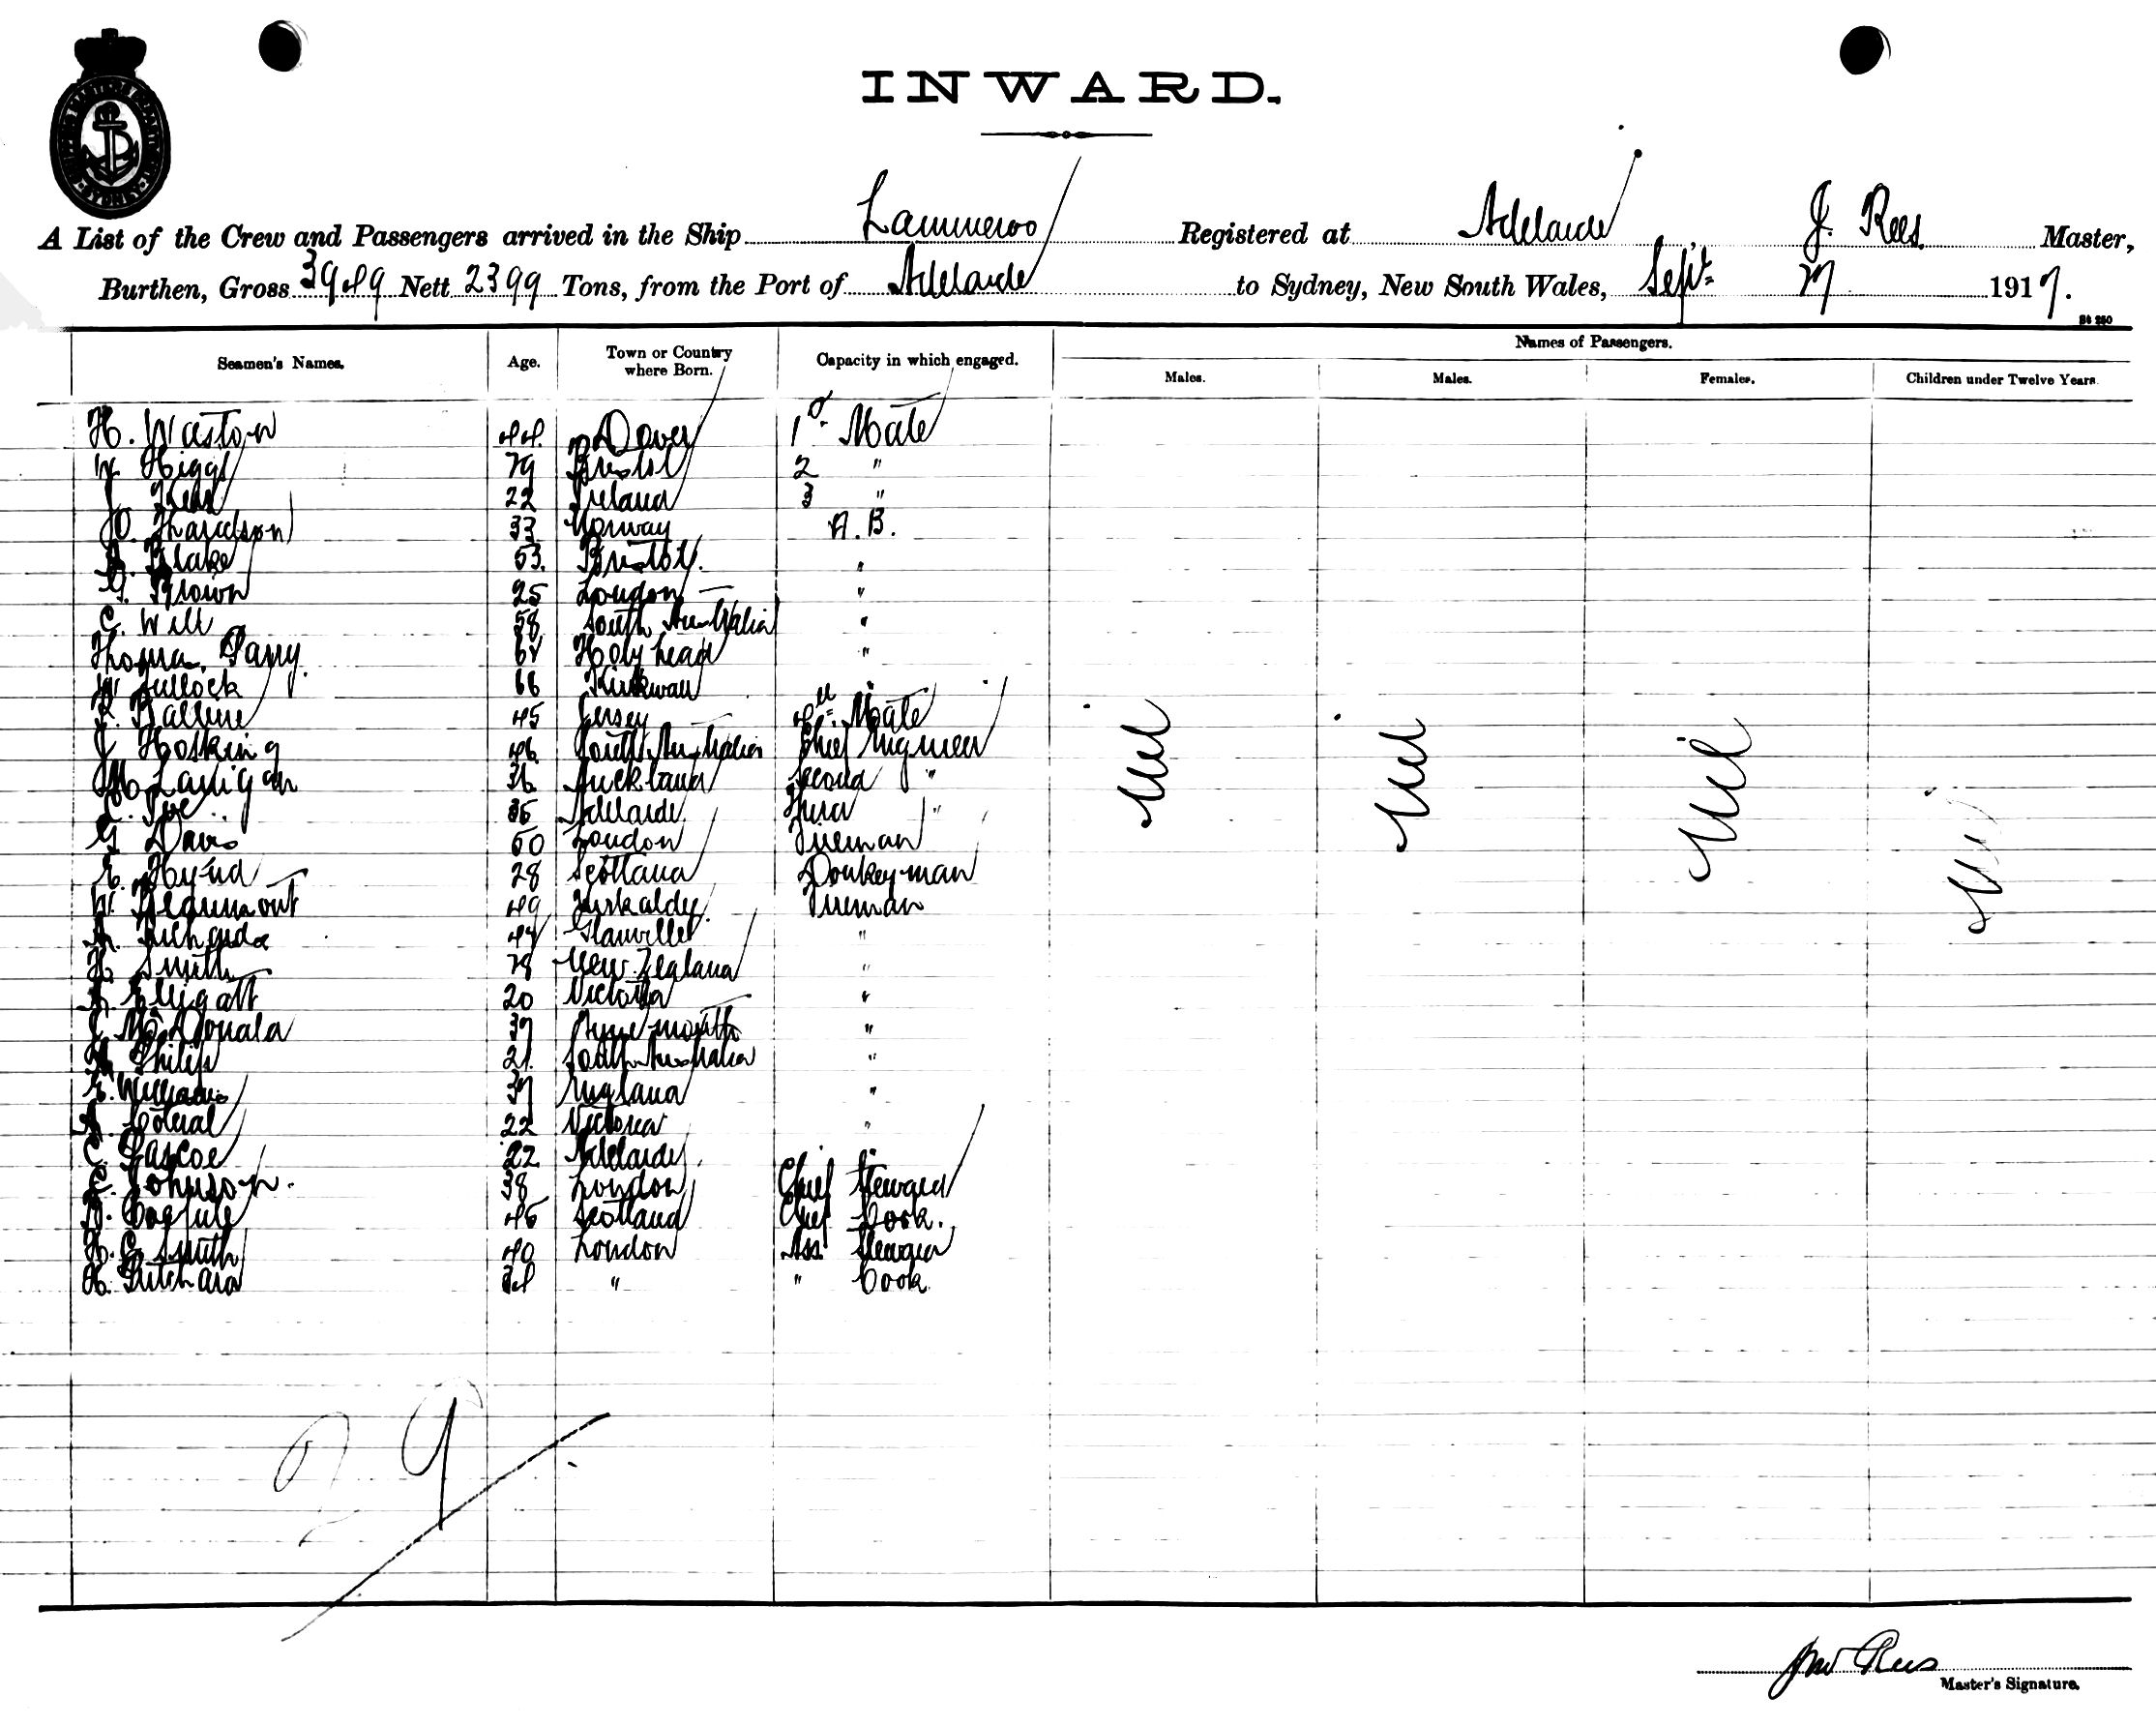 INWARD.
A List of the Crew and Passengers arrived in the Ship Lammeroo Registered at Adelaide J. Rees Master,
Burthen, Gross 3949 Nett 2399 Tons, from the Port of Adelaide to Sydney, New South Wales, Sept 1917.
Names of Passengers.
Seamen's Names. Age. Town or Country where Born. Capacity in which engaged. Males. Males. Females. Children under Twelve Years.
H. Waston 44. Dover 1st Mate
Higgs Bristol 2 "
22 Ireland 3 "
33 Norway A.B.
Blake 53. Bristol. "
G. Brown 25 London "
C. Will 58 South Australia "
Thomas Parry 64 Holyhead "
W Tullock 66 Kirkwall "
45 Jersey 4th Mate
J Hosking 46 South Australia Chief Engineer
M Lanigan 36 Auckland Second "
35 Adelaide Third "
G Davis 50 London Fireman
E. Hynd 28 Scotland Donkeyman
W. Beaumont 49 Kirkaldy Fireman
A. Richards Glanville "
H. Smith New Zealand "
20 Victoria "
J. McDonald 37 Tynemouth "
Philip 21. South Australia "
E. Williams 37 England "
22 Victoria "
C. Pascoe 22 Adelaide "
Johnson. 38 London Chief Steward
45 Scotland Chief Cook.
H. C. Smith 40 London Ass. Steward
H. Pritchard 34 " " Cook
Nil Nil Nil Nil
29
Rees
Master's Signature.